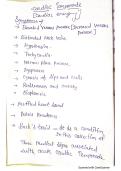 Cardiac Tamponade
[Cardiac emergency]
Symptoms →
→ Elevated Venous pressure [Increased Venous pressure]
→ Distended neck vein
→ Hypotension
→ Tachycardia
→ Narrow pulse pressure
→ Dyspnoea
→ Cyanosis of lips and nails
→ Restlessness and anxiety
→ Diaphoresis
→ Muffled heart sound
→ Pulsus Paradoxus
→ Beck's triad → It is a Condition
in the collection of
Three medical signs associated
with acute Cardiac Tamponade.